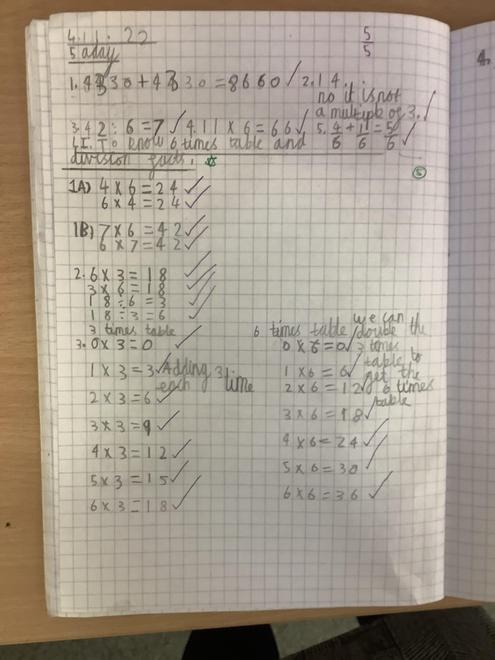 4.1.22
5 a day
5/5
1. 4330 + 4330 = 8660 2. 14.
no it is not
a multiple of 3.
3. 42 ÷ 6 = 7 4. 11 x 6 = 66 5. 4/6 + 1/6 = 5/6
L.I. To know 6 times table and
division facts.
1A) 4 x 6 = 24
6 x 4 = 24
1B) 7 x 6 = 42
6 x 7 = 42
2. 6 x 3 = 18
3 x 6 = 18
18 ÷ 6 = 3
18 ÷ 3 = 6
3 times table
3. 0 x 3 = 0
1 x 3 = 3 Adding 3
each time
2 x 3 = 6
3 x 3 = 9
4 x 3 = 12
5 x 3 = 15
6 x 3 = 18
6 times table
0 x 6 = 0
1 x 6 = 6
2 x 6 = 12
3 x 6 = 18
4 x 6 = 24
5 x 6 = 30
6 x 6 = 36
we can
double the
3 times
table to
get the
6 times
table
4.